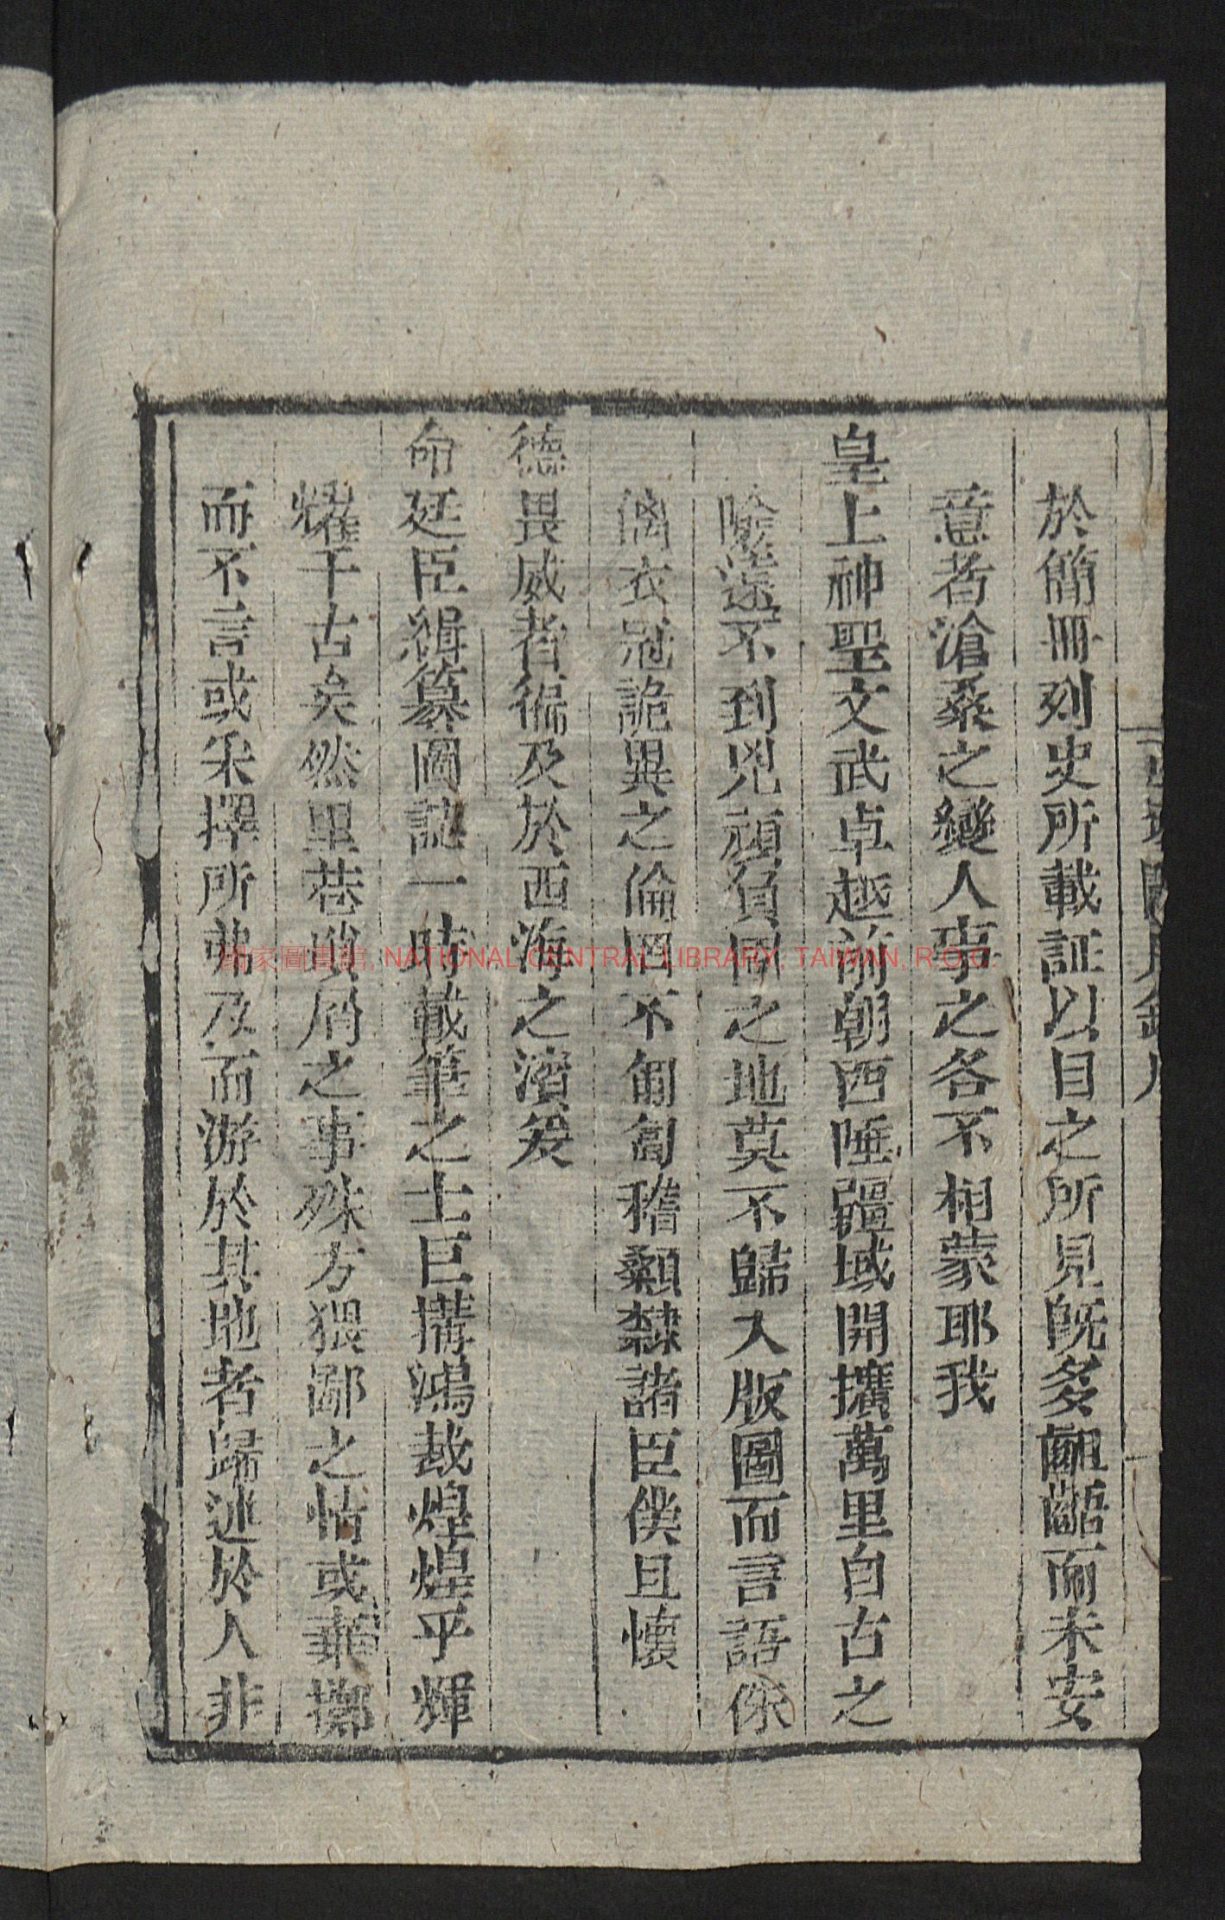 於簡冊列史所載証以目之所見旣多齟齬而未安
意者滄桑之變人事之各不相蒙耶我
皇上神聖文武卓越前朝西陲疆域開擴萬里自古之
險遠不到兇頑負固之地莫不歸入版圖而言語侏
𠌯衣冠詭異之倫罔不匍匐稽顙隸諸臣僕且懷
德畏威者徧及於西海之濱爰
命廷臣緝纂圖誌一時載筆之士巨搆鴻裁煌煌乎輝
耀千古矣然里巷瑣屑之事殊方猥鄙之怙或棄擲
而不言或采擇所弗及而游於其地者歸述於人非
國家圖書館, NATIONAL CENTRAL LIBRARY, TAIWAN, R.O.C.